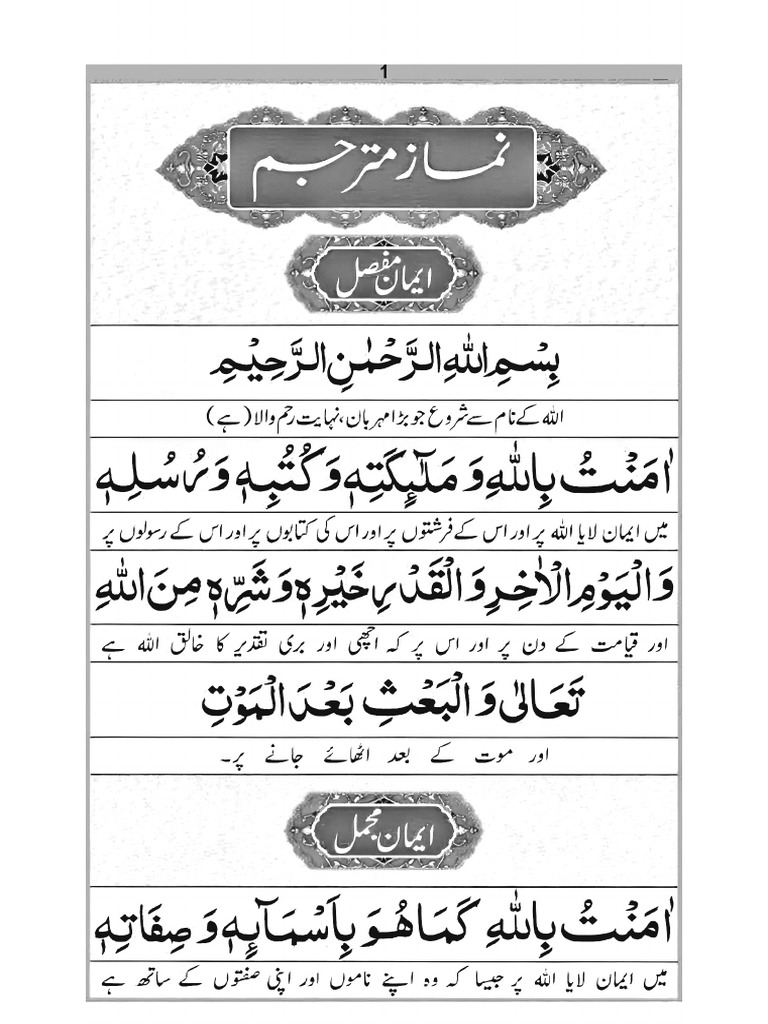 1
نماز مترجم
ایمان مفصل
بِسْمِ اللّٰهِ الرَّحْمٰنِ الرَّحِیْمِ
اللہ کے نام سے شروع جو بڑا مہربان، نہایت رحم والا (ہے)
اٰمَنْتُ بِاللّٰهِ وَ مَلٰٓئِكَتِهٖ وَ كُتُبِهٖ وَ رُسُلِهٖ
میں ایمان لایا اللہ پر اور اس کے فرشتوں پر اور اس کی کتابوں پر اور اس کے رسولوں پر
وَ الْیَوْمِ الْاٰخِرِ وَ الْقَدْرِ خَیْرِهٖ وَ شَرِّهٖ مِنَ اللّٰهِ
اور قیامت کے دن پر اور اس پر کہ اچھی اور بری تقدیر کا خالق اللہ ہے
تَعَالٰی وَ الْبَعْثِ بَعْدَ الْمَوْتِ
اور موت کے بعد اٹھائے جانے پر۔
ایمان مجمل
اٰمَنْتُ بِاللّٰهِ كَمَا هُوَ بِاَسْمَآئِهٖ وَ صِفَاتِهٖ
میں ایمان لایا اللہ پر جیسا کہ وہ اپنے ناموں اور اپنی صفتوں کے ساتھ ہے